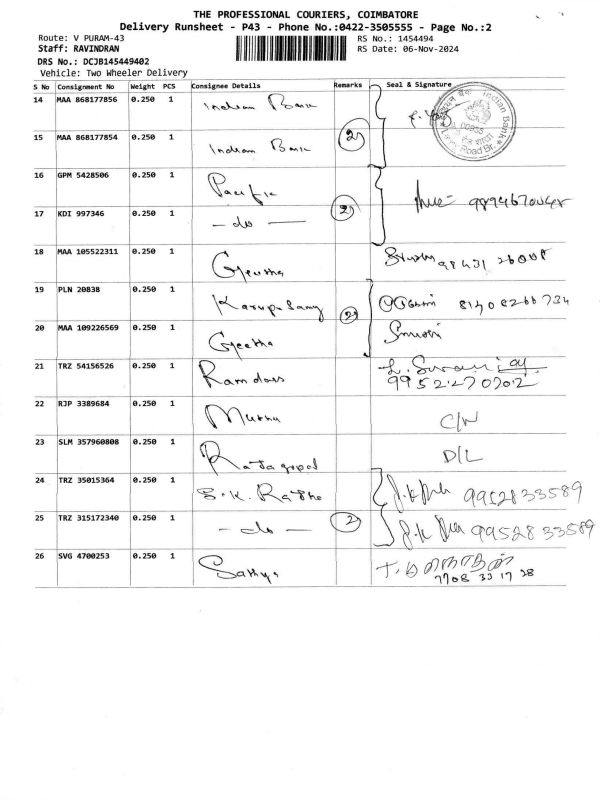 THE PROFESSIONAL COURIERS, COIMBATORE
Delivery Runsheet - P43 - Phone No.:0422-3505555 - Page No.:2
Route: V PURAM-43 RS No.: 1454494
Staff: RAVINDRAN RS Date: 06-Nov-2024
DRS No.: DCJB145449402
Vehicle: Two Wheeler Delivery
S No Consignment No Weight PCS Consignee Details Remarks Seal & Signature
14 MAA 868177856 0.250 1 Indian Bank
15 MAA 868177854 0.250 1 Indian Bank 2
16 GPM 5428506 0.250 1 Pacific
17 KDI 997346 0.250 1 - do - 2
18 MAA 105522311 0.250 1 Geetha
19 PLN 20838 0.250 1 Karupusamy 2 81408266734
20 MAA 109226569 0.250 1 Geetha
21 TRZ 54156526 0.250 1 Ramdoss 9952270202
22 RJP 3389684 0.250 1 Muthu C/N
23 SLM 357960808 0.250 1 Rajagopal D/L
24 TRZ 35015364 0.250 1 S.K. Radhe 9952833589
25 TRZ 315172340 0.250 1 - do - 2 9952833589
26 SVG 4700253 0.250 1 Sathya 7708 33 17 28